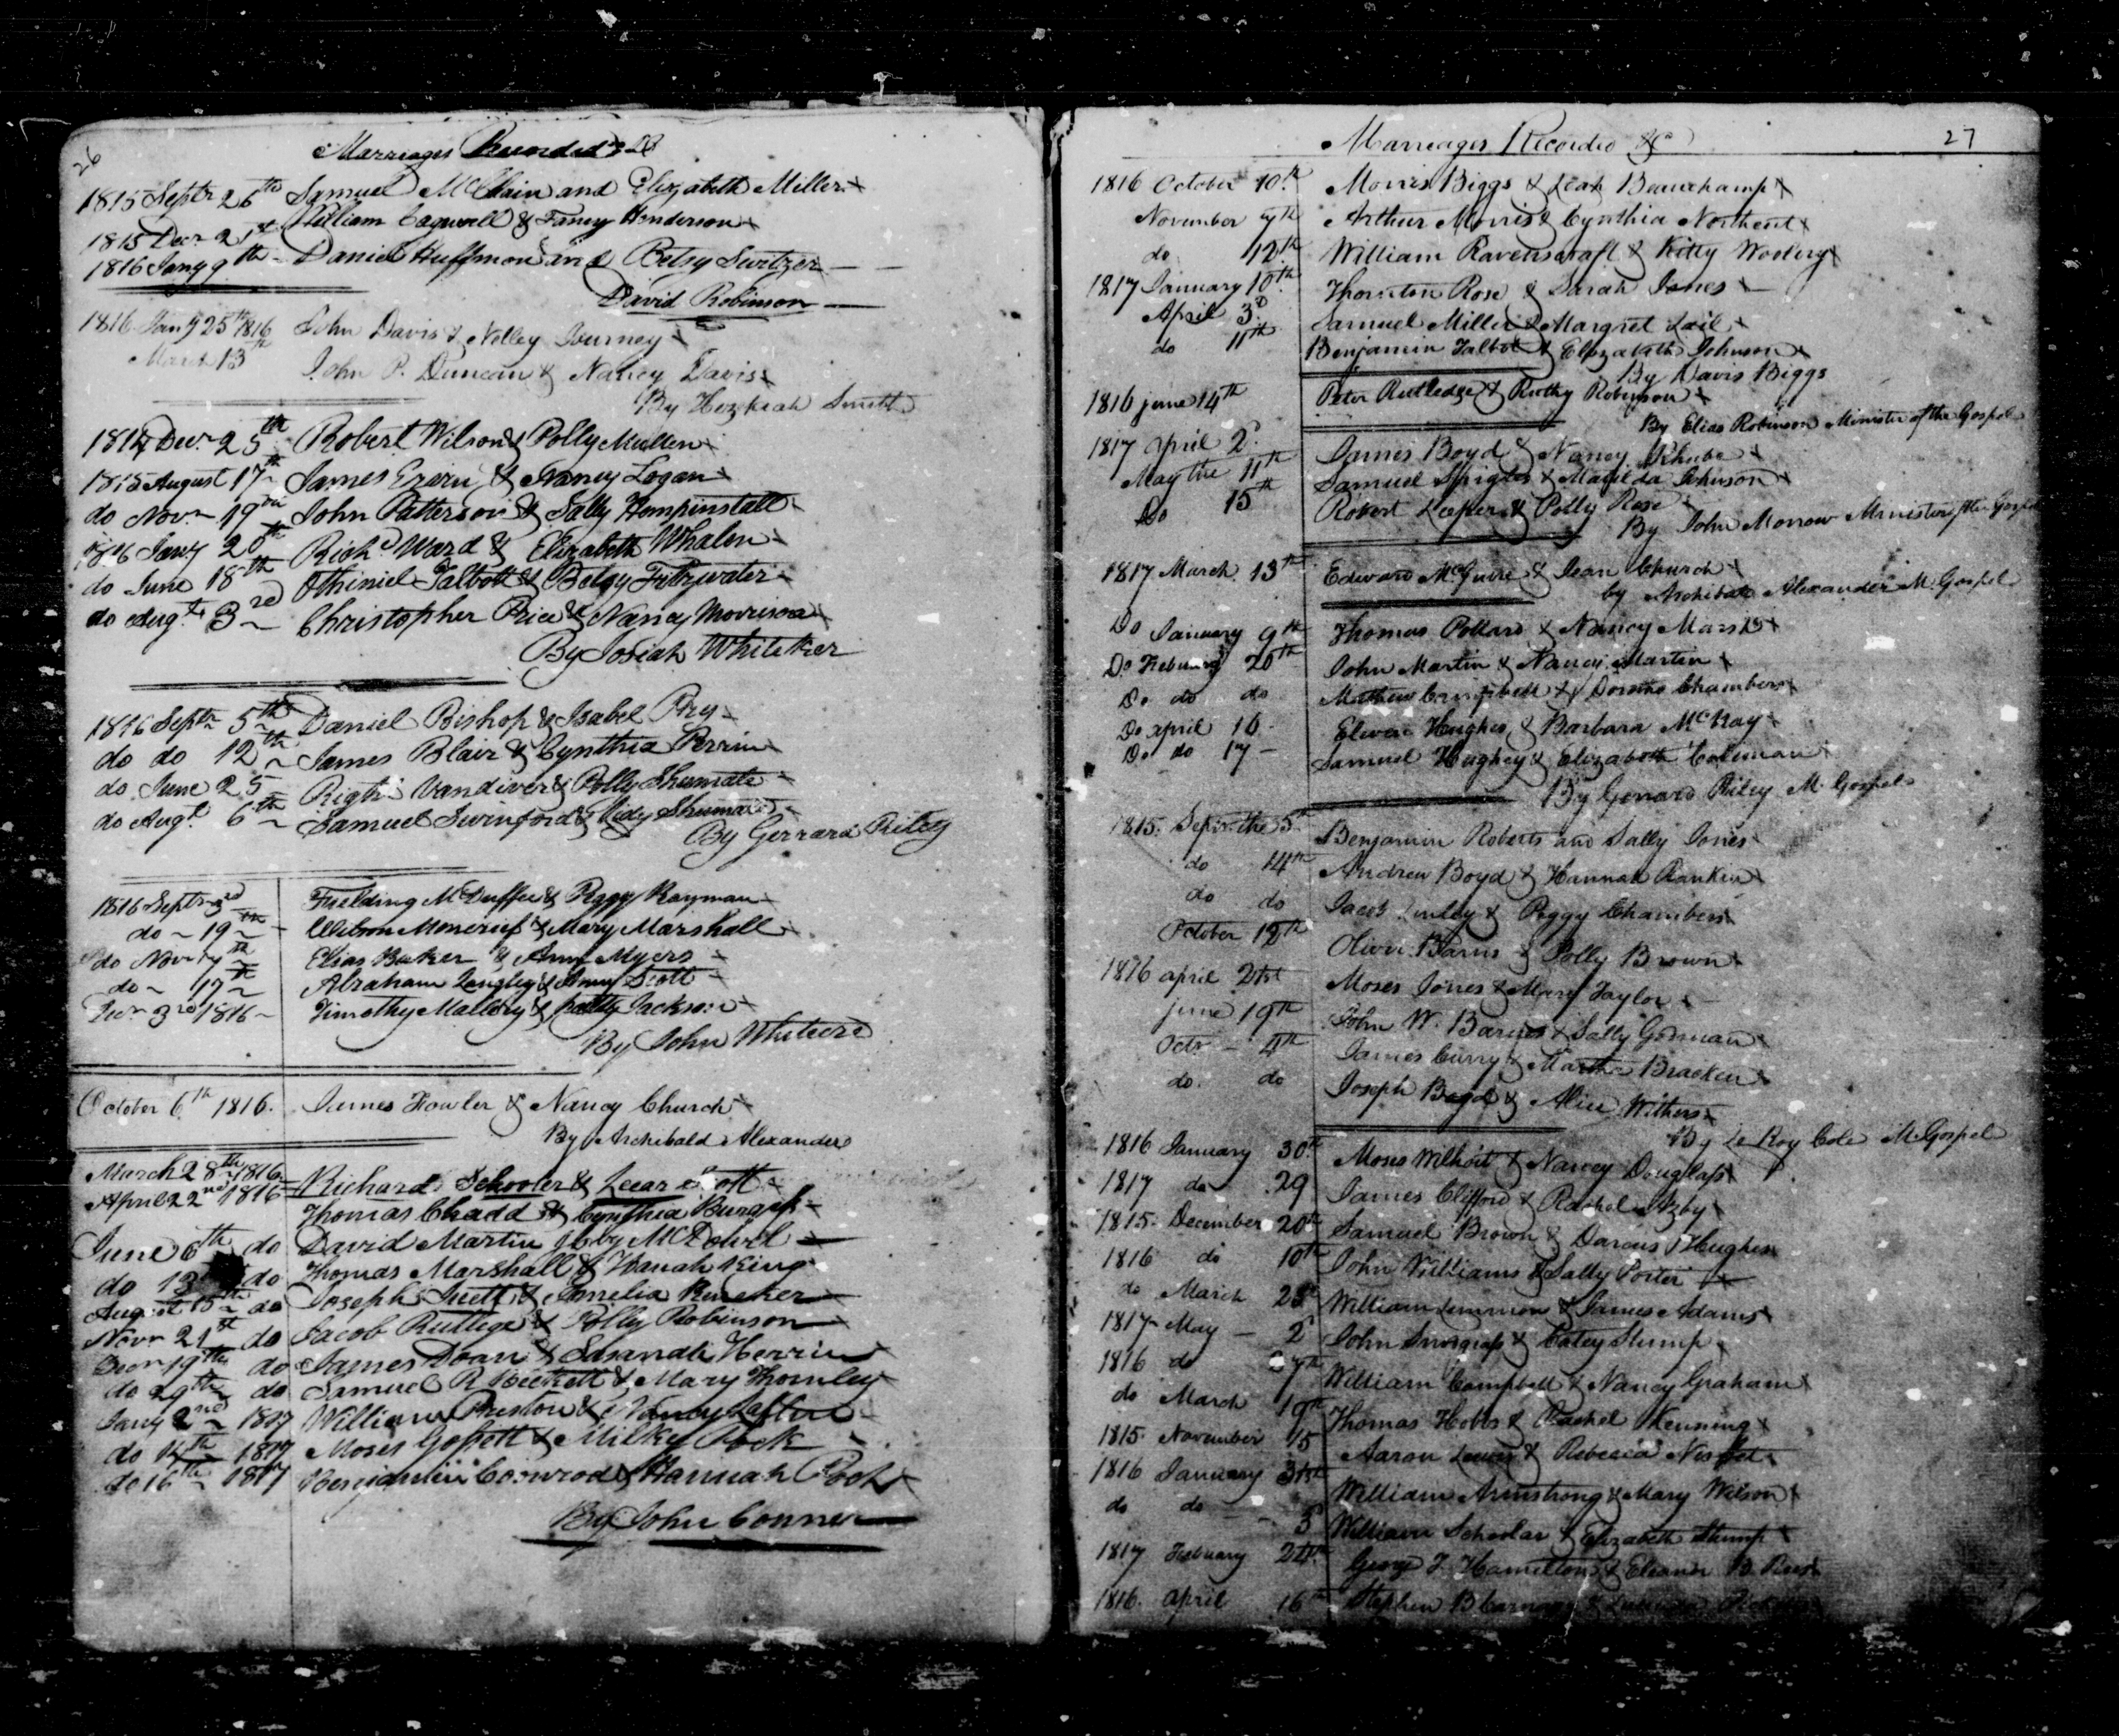 26
Marriages Recorded &c
1815 Septr 26th Samuel McClain and Elizabeth Miller
1815 Decr 21st William Cagwell & Fancy Henderson
1816 Jany 9th Daniel Huffmon and Betsy Switzer
David Robinson
1816 Jany 25th 1816 John Davis & Nelley Journey
March 13th John P. Duncan & Nancy Davis
By Hezekiah Smith
1814 Decr 25th Robert Wilson & Polly Mullen
1815 August 17th James & Nancy Logan
do Novr 19th John Patterson & Sally Hempinstall
1816 Jany 20th Richd Ward & Elizabeth Whalen
do June 18th Othiniel Talbott & Betsy Fitzwater
do Augt 3rd Christopher Price & Nancy Morrison
By Josiah Whitaker
1816 Septr 5th Daniel Bishop & Isabel Pry
do do 12th James Blair & Cynthia Perrin
do June 25 Vandiver & Polly Shumate
do Augt 6th Samuel Swinford & Shumate
By Gerrard Riley
1816 Septr 3rd Fielding McDuffee & Peggy Rayman
do 19th Wilson Moncrief & Mary Marshall
do Novr 7th Elias Baker & Ann Myers
do 17th Abraham Langley & Scott
Decr 3rd 1816 Timothy Mallory & Patty Jackson
By John Whitecre
October 6th 1816. James Fowler & Nancy Church
By Archibald Alexander
March 28th 1816 Richard Schooler & Scott
April 22nd 1816 Thomas Chadd & Cynthia Burgess
June 6th do David Martin McDowel
do 13 do Thomas Marshall & Hanah King
August 15th do Joseph & Amelia
Novr 21st do Jacob Rutlege & Polly Robinson
Decr 19th do James Doan & Susanah Herrin
do 29th do Samuel R. Beckett & Mary Thornley
Jany 2nd 1817 William Preston & Nancy
do 14th 1817 Moses Gossett & Milkey Pock
do 16th 1817 Benjamin Conrod & Hannah Pock
By John Conner
Marriages Recorded &c 27
1816 October 10th Morris Biggs & Leah Beauchamp
November 7th Arthur Morris & Cynthia Northcut
do 12th William Ravenscraft & Kitty Woolery
1817 January 10th Thornton Rose & Sarah Jones
April 3d Samuel Miller & Margret Lail
do 11th Benjamin Talbot & Elizabeth Johnson
By Davis Biggs
1816 june 14th Peter Rutledge & Ruthy Robinson
By Elias Robinson Minister of the Gospel
1817 april 2d James Boyd & Nancy
May the 11th Samuel & Matilda Johnson
Do 15th Robert Leeper & Polly Rose
By John Morrow Minister of the Gospel
1817 March 13th Edward McGuire & Jean Church
by Archibald Alexander M. Gospel
Do January 9th Thomas Pollard & Nancy Marsh
Do Febuary 20th John Martin & Nancy Martin
Do do do Mathew Campbell & Chambers
Do april 16 Hughes & Barbara McKay
Do do 17 Samuel Hughey & Elizabeth Coleman
By Gerrard Riley M. Gospel
1815. Sepr the 5th Benjamin Roberts and Sally Jones
do 14th Andrew Boyd & Hannah Rankin
do do Jacob & Peggy Chambers
October 12th Oliver Barns & Polly Brown
1816 april 21st Moses Jones & Mary Taylor
june 19th John W. Barnes & Sally Gorman
Octr 4th James Curry & Martha Bracken
do do Joseph Boyd & Alice Withers
By Le Roy Cole M. Gospel
1816 January 30th Moses Wilhoit & Nancy Douglass
1817 do 29 James Clifford & Rachel
1815. December 20th Samuel Brown & Darcus Hughes
1816 do 10th John Williams & Sally Porter
do March 28th William Lemmon & James Adams
1817 May 2d John Snodgrass & Catey Stump
1816 do 27th William Campbell & Nancy Graham
do March 19th Thomas Hobbs & Rachel
1815. November 15 Aaron & Rebecca
1816 January 31st William Armstrong & Mary Wilson
do do 3d William Scholar & Elizabeth Stump
1817 Febuary 24th George F. Hamilton & Eleanor B. Reed
1816. april 16th Stephen B